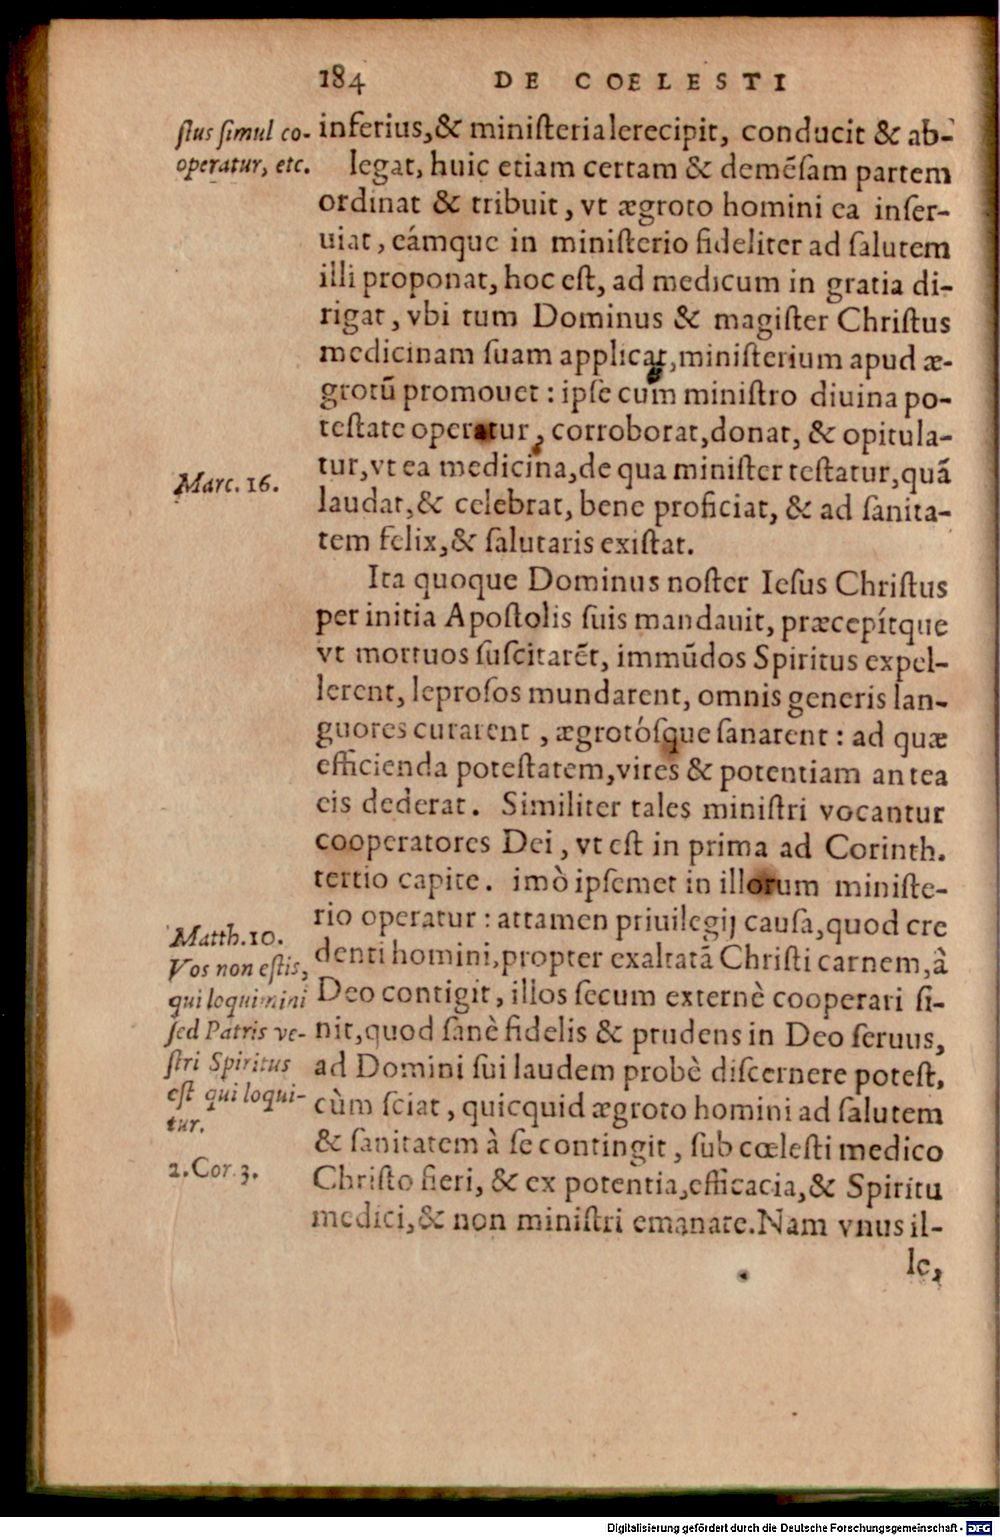 184 DE COELESTI
ſtus ſimul co-
operatur, etc.
inferius,& miniſterialerecipit, conducit & ab-
legat, huic etiam certam & demẽſam partem
ordinat & tribuit, vt ægroto homini ea inſer-
uiat, eámque in miniſterio fideliter ad ſalutem
illi proponat, hoc eſt, ad medicum in gratia di-
rigat, vbi tum Dominus & magiſter Chriſtus
medicinam ſuam applicat,miniſterium apud æ-
grotũ promouet : ipſe cum miniſtro diuina po-
teſtate operatur, corroborat,donat, & opitula-
Marc. 16.
tur,vt ea medicina,de qua miniſter teſtatur,quã
laudat,& celebrat, bene proficiat, & ad ſanita-
tem felix,& ſalutaris exiſtat.
Ita quoque Dominus noſter Ieſus Chriſtus
per initia Apoſtolis ſuis mandauit, præcepítque
vt mortuos ſuſcitarẽt, immũdos Spiritus expel-
lerent, leproſos mundarent, omnis generis lan-
guores curarent, ægrotóſque ſanarent : ad quæ
efficienda poteſtatem,vires & potentiam antea
eis dederat. Similiter tales miniſtri vocantur
cooperatores Dei, vt eſt in prima ad Corinth.
tertio capite. imò ipſemet in illorum miniſte-
rio operatur : attamen priuilegij cauſa,quod cre
denti homini,propter exaltatã Chriſti carnem,à
Deo contigit, illos ſecum externè cooperari ſi-
nit,quod ſanè fidelis & prudens in Deo ſeruus,
ad Domini ſui laudem probè diſcernere poteſt,
cùm ſciat, quicquid ægroto homini ad ſalutem
& ſanitatem à ſe contingit, ſub cœleſti medico
Chriſto fieri, & ex potentia,efficacia,& Spiritu
medici,& non miniſtri emanare.Nam vnus il-
Matth.10.
Vos non eſtis,
qui loquimini
ſed Patris ve-
ſtri Spiritus
eſt qui loqui-
tur.
2.Cor.3.
le,
Digitalisierung gefördert durch die Deutsche Forschungsgemeinschaft - DFG